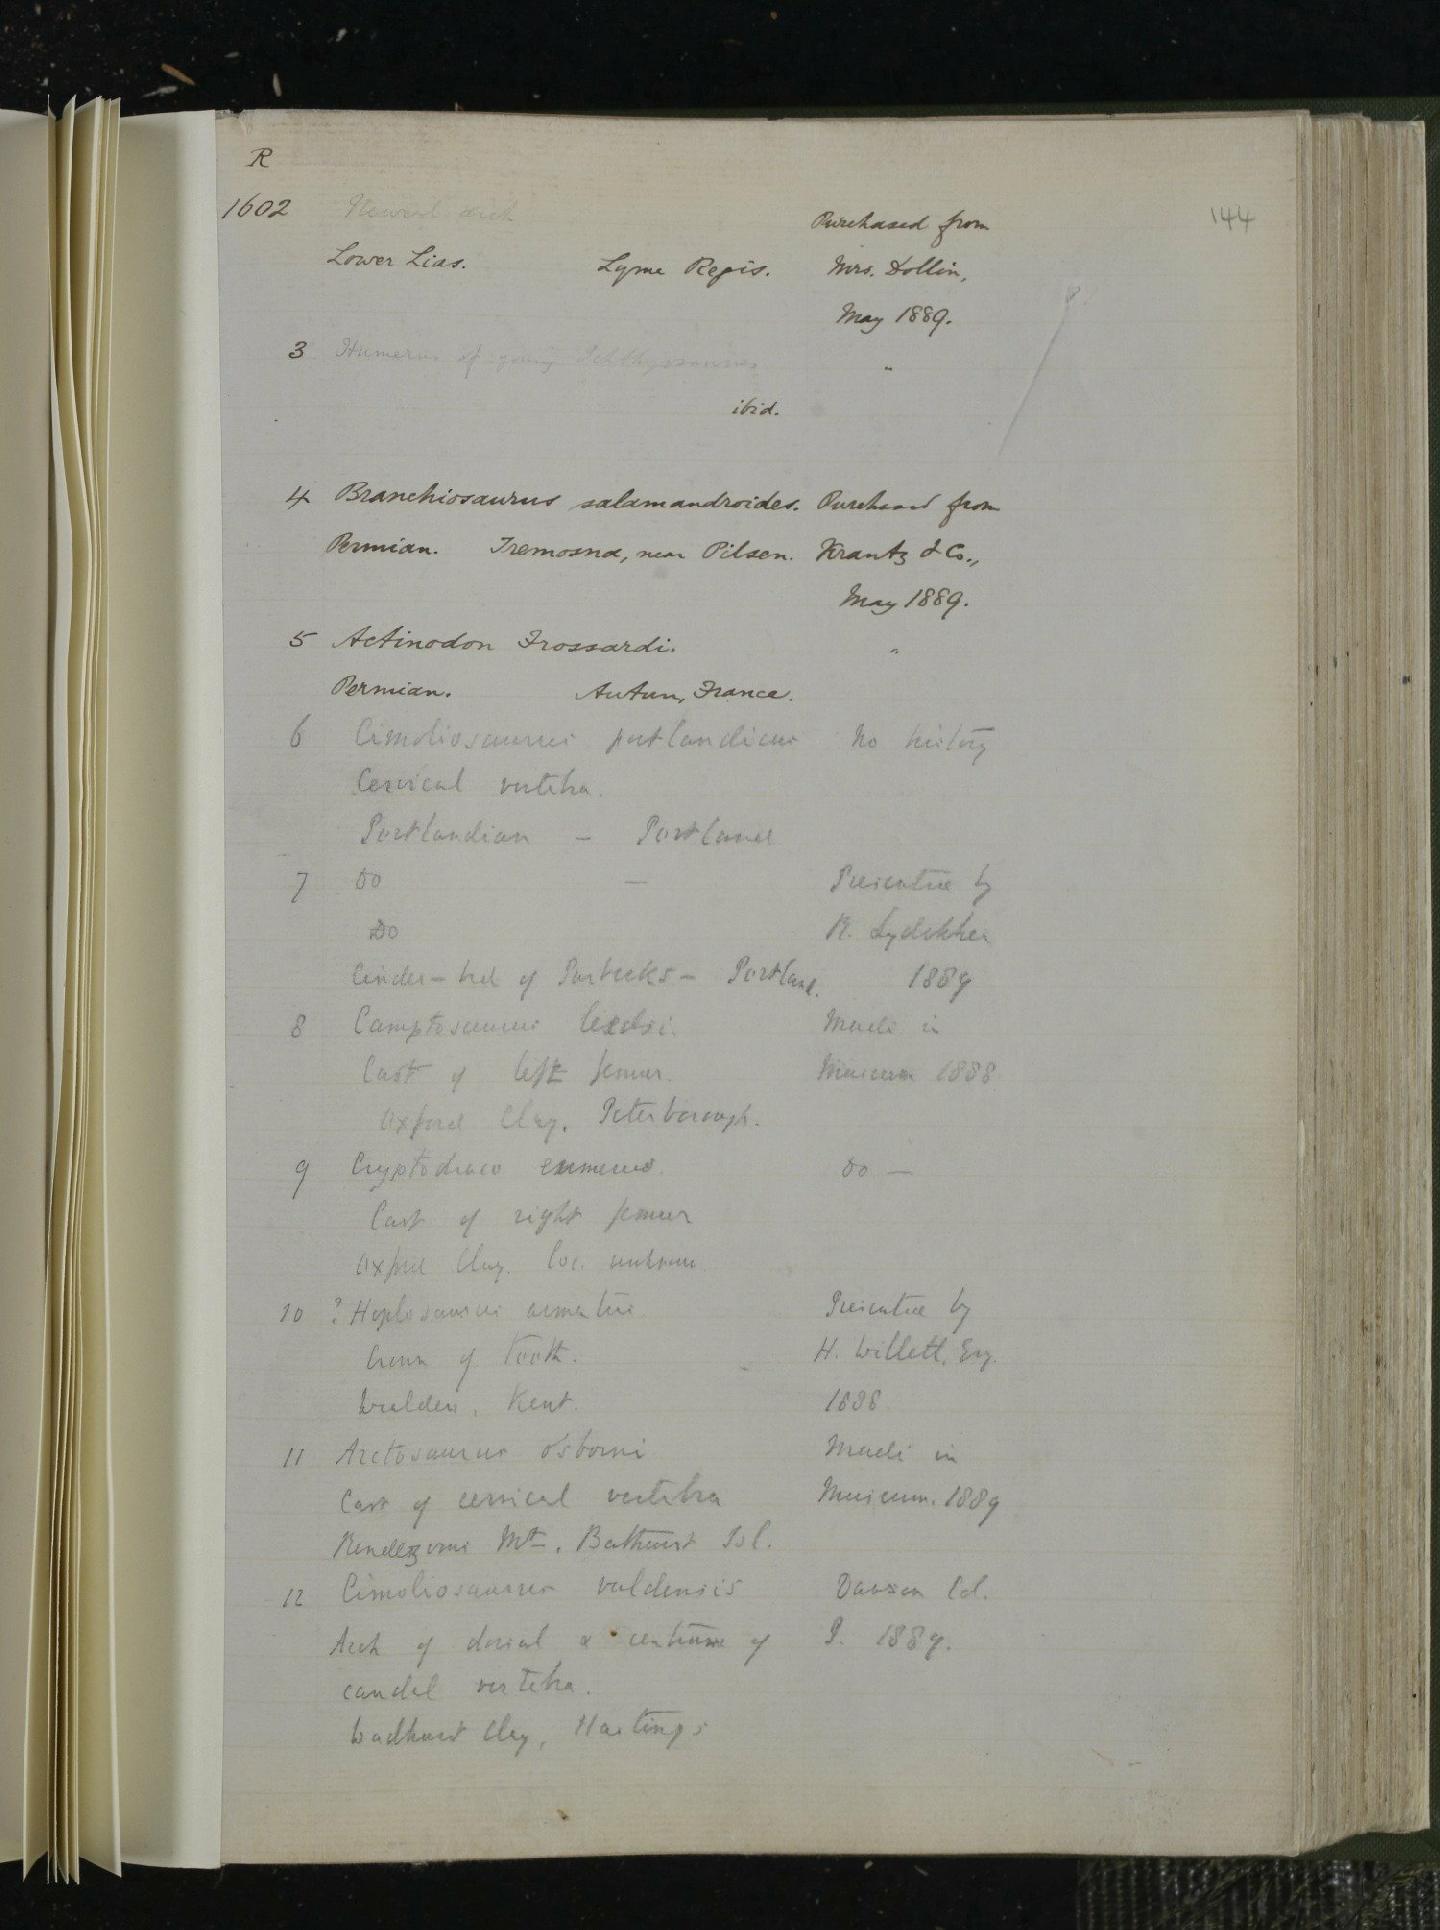 R
144
1602 Neural arch Purchased from
Lower Lias. Lyme Regis. Mrs. Dollin,
May 1889.
3 Humerus of young Ichthyosaurus "
ibid.
4 Branchiosaurus salamandroides. Purchased from
Permian. Tremosna, near Pilsen. Krantz & Co.,
May 1889.
5 Actinodon Frossardi. "
Permian. Autun, France.
6 Cimoliosaurus portlandicus No history
Cervical vertebra.
Portlandian - Portland
7 Do — Presented by
Do R. Lydekker
Cinder-bed of Purbecks - Portland. 1889
8 Camptosaurus leedsi. Made in
Cast of left femur. Museum 1888
Oxford Clay. Peterborough.
9 Cryptodraco eumerus. Do —
Cast of right femur
Oxford Clay. Loc. unknown
10 ? Hoplosaurus armatus Presented by
Crown of tooth. H. Willett, Esq.
Wealden, Kent. 1888
11 Arctosaurus osborni Made in
Cast of cervical vertebra Museum. 1889
Rendezvous Mt., Bathurst Isl.
12 Cimoliosaurus valdensis Dawson Col.
Arch of dorsal & centrum of P. 1889.
caudal vertebra.
Wadhurst Clay, Hastings